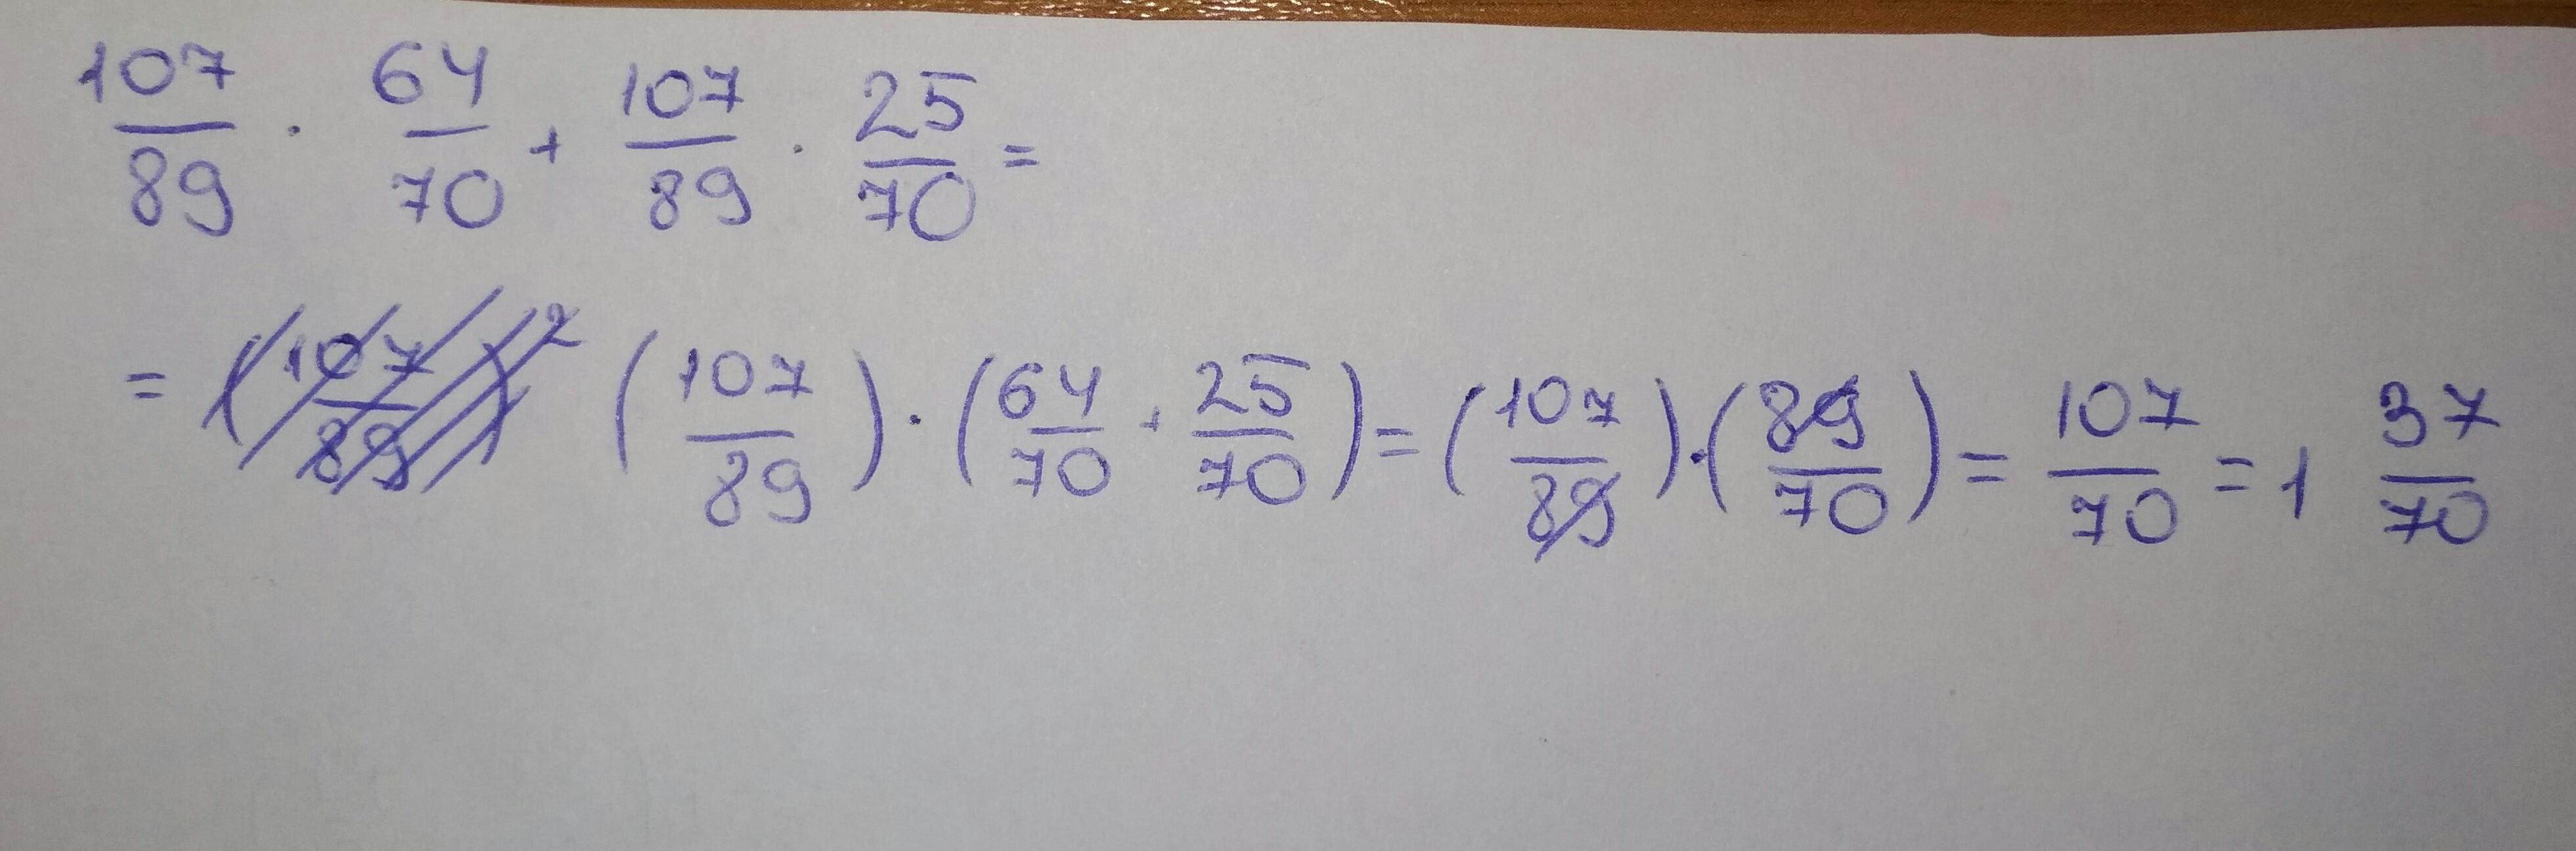 107/89 · 64/70 + 107/89 · 25/70 =
= (107/89)² (107/89) · (64/70 + 25/70) = (107/89) · (89/70) = 107/70 = 1 37/70